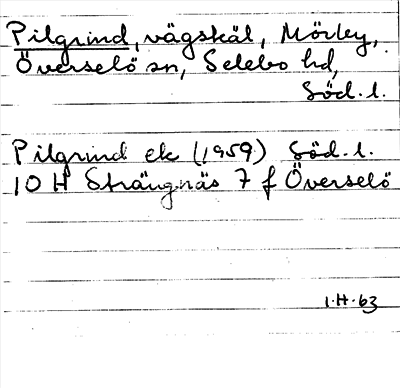 Pilgrind, vägskäl, Mörby,
Överselö sn, Selebo hd,
Söd. l.
Pilgrind ek (1959) Söd. l.
10 H Strängnäs 7 f Överselö
1.H.63